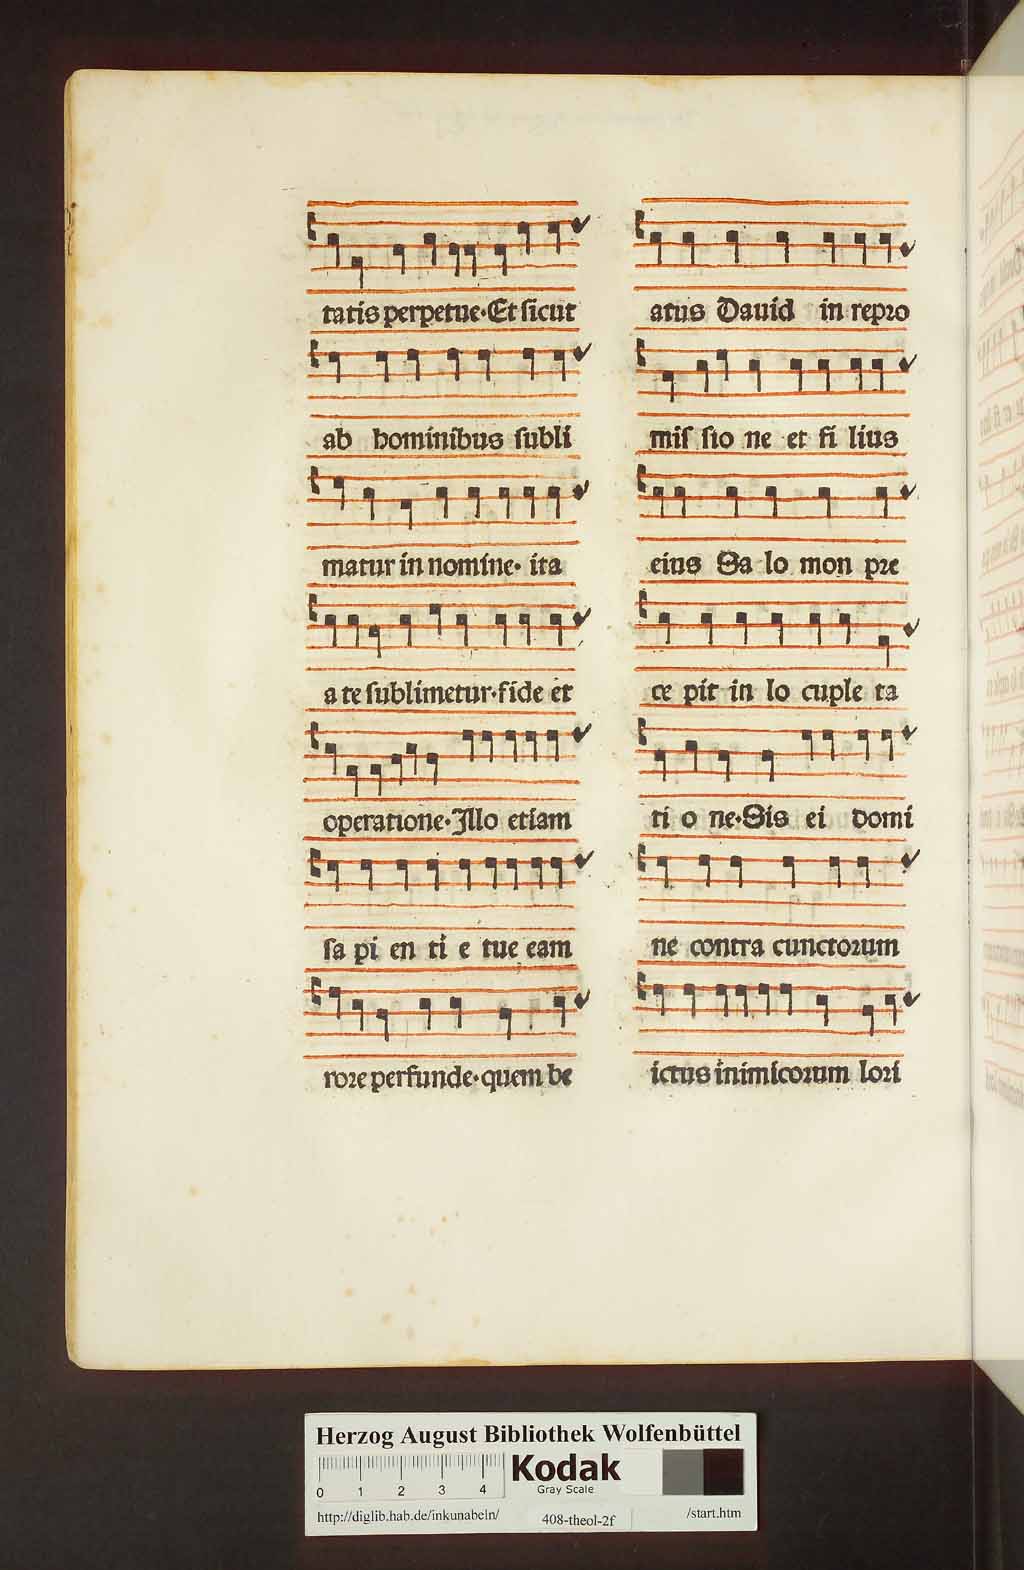 tatis perpetue·Et sicut
ab hominibus subli
matur in nomine· ita
a te sublimetur·fide et
operatione·Illo etiam
sa pi en ti e tue eam
rore perfunde·quem be
atus Dauid in repro
mis sio ne et fi lius
eius Sa lo mon pre
ce pit in lo cuple ta
ti o ne·Sis ei domi
ne contra cunctorum
ictus inimicorum lori
Herzog August Bibliothek Wolfenbüttel
0 1 2 3 4
Kodak
Gray Scale
http://diglib.hab.de/inkunabeln/ 408-theol-2f /start.htm